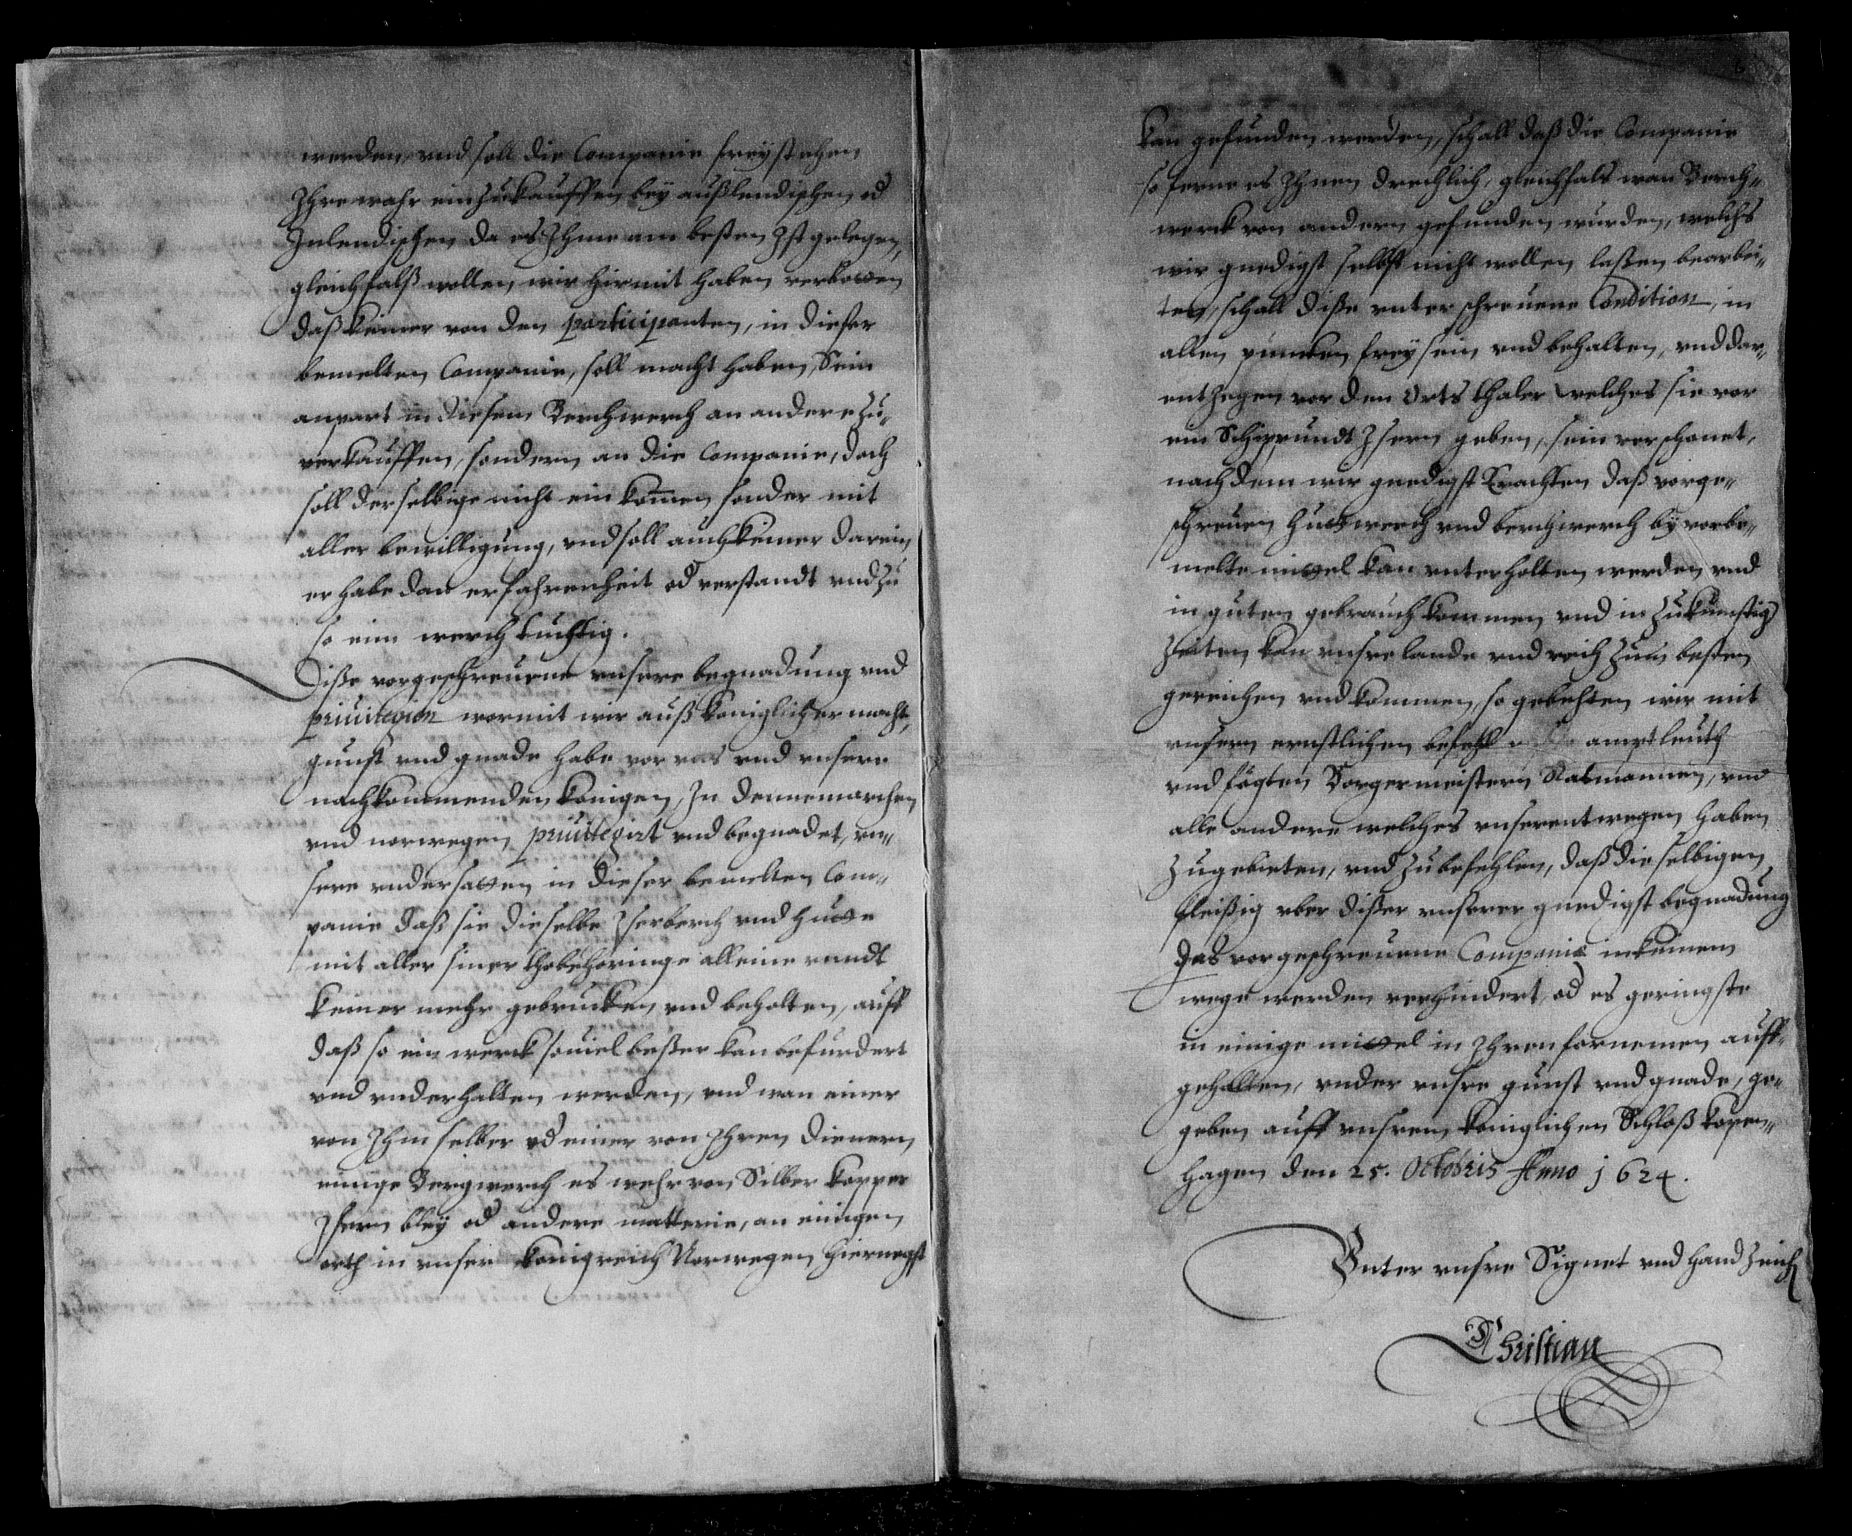 werden, vnd soll die Companie freystehen
Ihre wahr einzukauffen bey außlendischen od
Inlendischen da es Ihme am besten Ist gelegen,
gleichfalß wollen wir hirmit haben verbotten
daß keiner von den participanten, in dieser
bemelten Companie, soll macht haben, Sein
anpart in diesem Berchwerch an andere zu-
verkauffen, sondern an die Companie, doch
soll derselbige nicht ein komen sonder mit
aller bewilligung, vnd soll auch keiner darein
er habe dan erfahrenheit od verstandt vnd zu
so einn werch tuchtig.
Diße vorgeschreuene vnsere begnadung vnd
priuilegion wormit wir auß koniglicher macht,
gunst vnd gnade habe vor vns vnd vnsere
nachkommenden konigen, In dennemarchen
vnd norwegen priuilegirt vnd begnadet, vn-
sere vndersatten in dieser bemelten Com-
panie daß sie dieselbe Iserberch vnd hutte
mit aller siner thobehoringe alleine vnndt
keiner mehr gebrucken vnd beholten, auff
daß so ein werck souiel beßer kan befurdert
vnd vnderhalten werden, vnd wan einer
von Ihm selber od einer von Ihren dienern
einige Bergwerch es wehr von Silber kopper
Isern bley od andere matterie, an einigen
orth in vnser konigreich Norwegen hiernegst
kan gefunden werden, schall daß die Companie
so ferne es Ihnen drechlich, gleichfals wan Berch-
werck von andern gefunden wurden, welchs
wir gnedigst selbst nicht wollen laßen bearbei-
ten, schall diße vnterschreuene Condition, in
allen puncten frey sein vnd behalten, vnd dar-
enthegen vor den Orts thaler welches sie vor
ein Schippundt Isern geben, sein verschonet,
nach dem wir gnedigst Erachten daß vorge-
schreuen huttwerch vnd berchwerch by vorbe-
melte mittel kan vnterholten werden vnd
in guten gebrauch kommen vnd in zukunftig
zeiten kan vnsre lande vnd reich zum besten
gereichen vnd kommen, so gebehten wir mit
vnsern ernstlichen befehl amptleuth
vnd fögten Borgermeistern Ratmannen, vnd
alle andere welches vnserentwegen haben
zugebieten, vnd zubefehlen, daß dieselbigen
fleißig vber dißer vnserer gnedigst begnadung
das vorgeschreuene Companie in keinem
wege werden verhindert, od es geringste
in einige mittel in Ihren fornemen auff-
gehalten, vnder vnsre gunst vnd gnade, ge-
geben auff vnsrem koniglichen Schloß kopen-
hagen den 25. Octobris Anno 1624.
Vnter vnsre Signet vnd handzeich
Christian